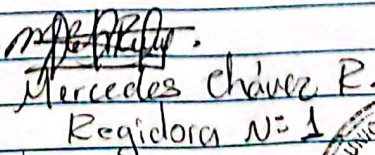 Mercedes Chávez R.
Regidora N= 1